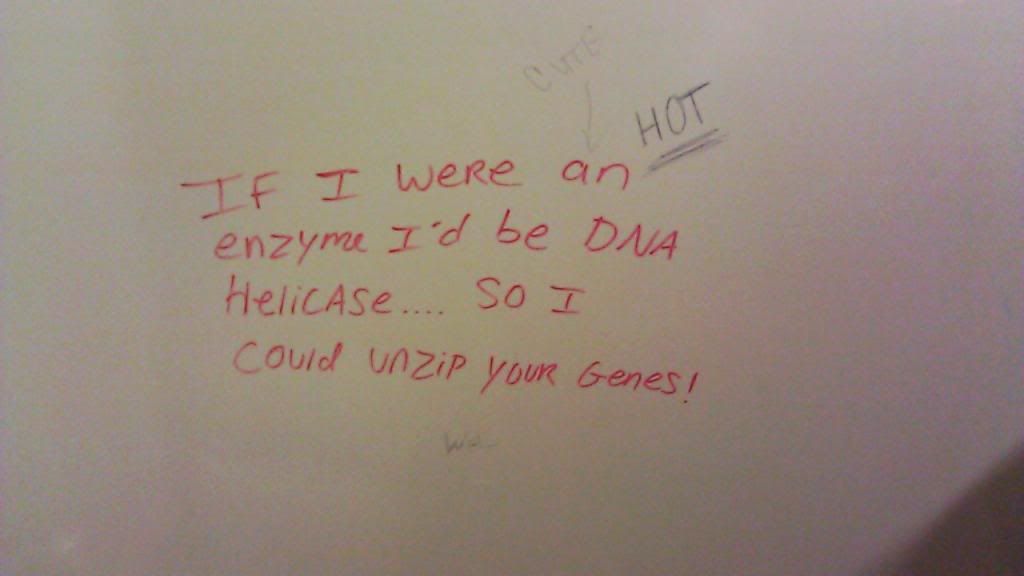 CUTE
HOT
IF I were an
enzyme I'd be DNA
HeliCASe.... SO I
Could unzip your Genes!